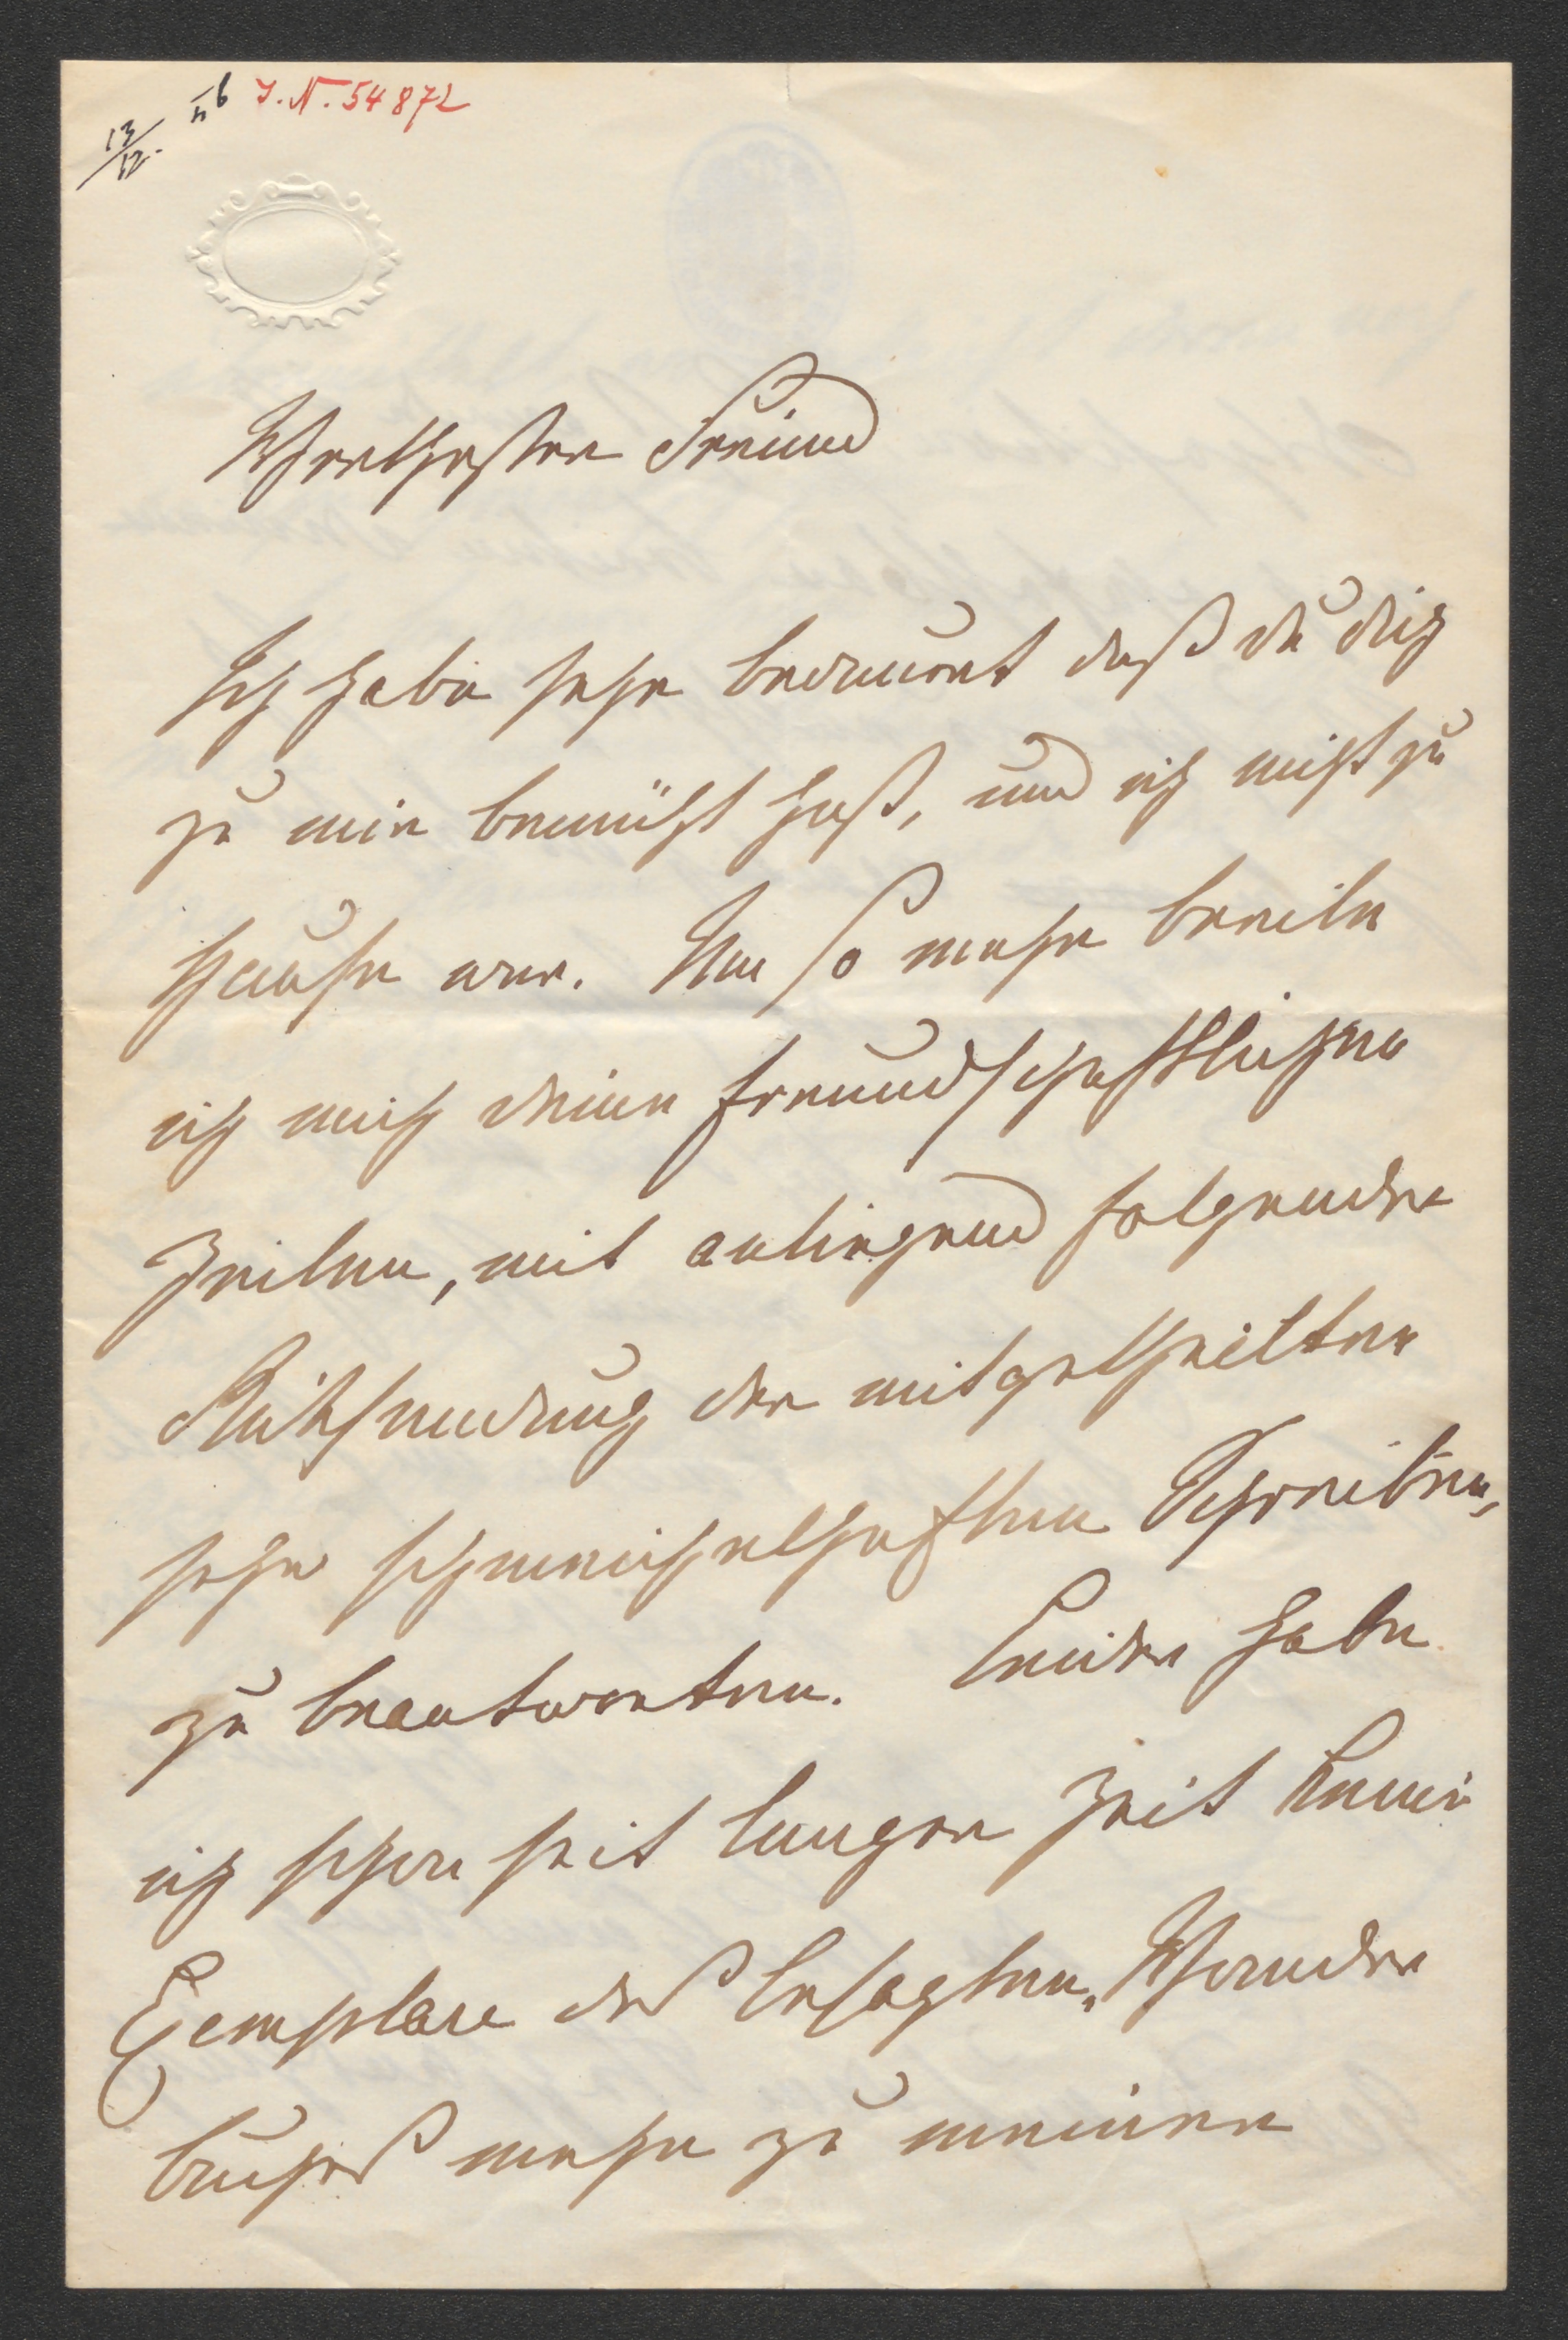 13/12. 56 I.N. 54872
Werthester Freund
Ich habe sehr bedauert daß du dich
zu mir bemüht hast, und ich nicht zu
Hause war. Um so mehr beeile
ich mich deine freundschaftlichen
Zeilen, mit anliegend folgender
Rücksendung der mitgetheilten
sehr schmeichelhaften Schreiben,
zu beantworten. Leider habe
ich schon seit langer Zeit keine
Exemplare des besagten
buches mehr zu meiner